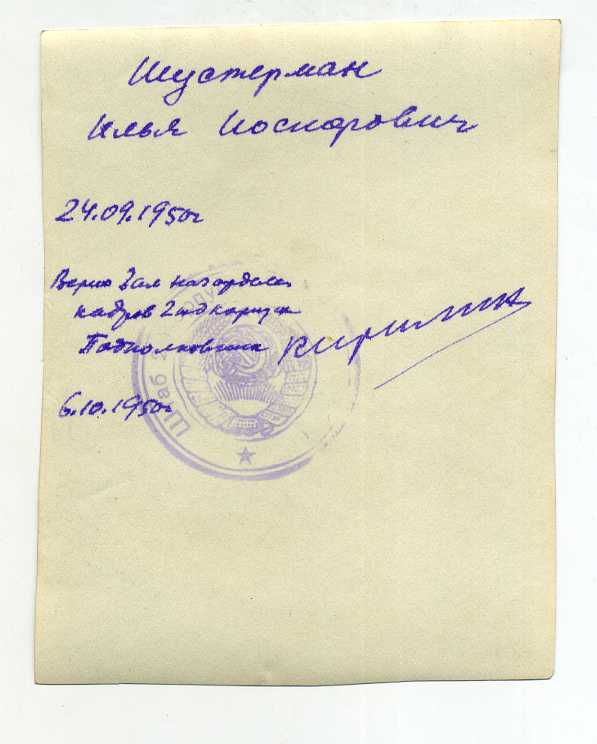 Шустерман
Илья Иоскарович
24.09.1950г
Верно Зам начотдела
кадров 2 корпуса
Подполковник Кирилин
6.10.1950г
Штаб